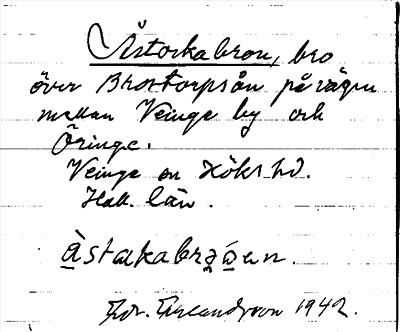 Åstarkabron, bro
över Brostorpsån på vägen
mellan Veinge by och
Öringe.
Veinge sn Höks hd.
Hall. län.
Åstarkabrǫ́ən.
1942.